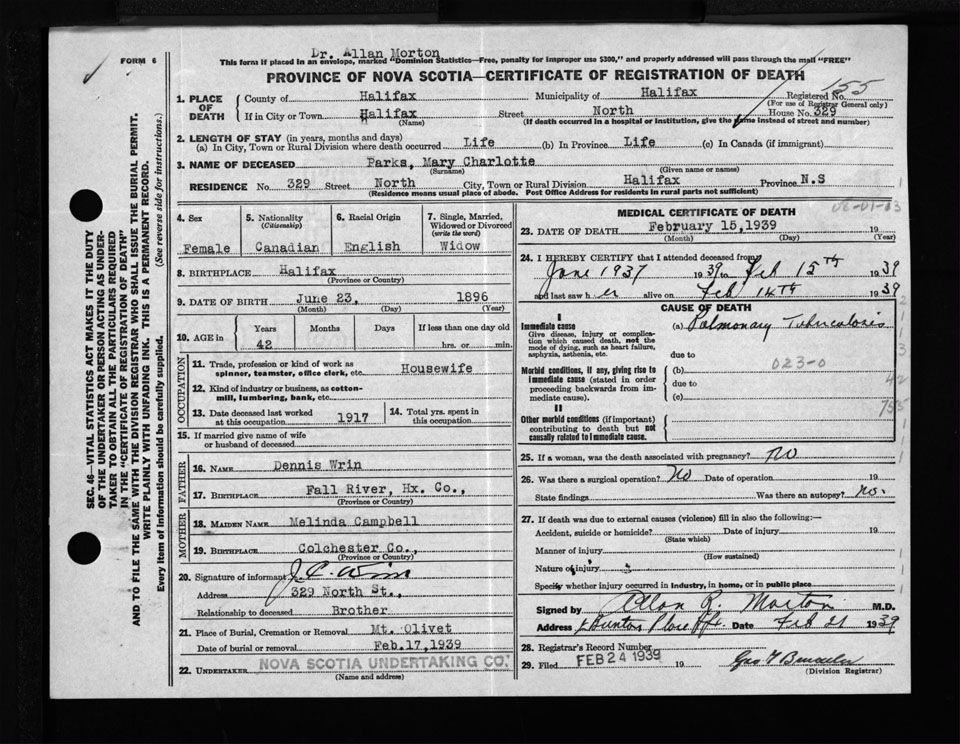 Dr. Allan Morton
FORM 6
This form if placed in an envelope, marked "Dominion Statistics—Free, penalty for improper use $300," and properly addressed will pass through the mail "FREE"
PROVINCE OF NOVA SCOTIA—CERTIFICATE OF REGISTRATION OF DEATH
155
1. PLACE OF DEATH
County of Halifax Municipality of Halifax Registered No.
(For use of Registrar General only)
If in City or Town Halifax Street North House No. 329
(Name) (If death occurred in a hospital or institution, give the name instead of street and number)
2. LENGTH OF STAY (in years, months and days)
(a) In City, Town or Rural Division where death occurred Life (b) In Province Life (c) In Canada (if immigrant)
3. NAME OF DECEASED Parks, Mary Charlotte
(Surname) (Given name or names)
RESIDENCE No. 329 Street North City, Town or Rural Division Halifax Province N.S
(Residence means usual place of abode. Post Office Address for residents in rural parts not sufficient)
4. Sex Female
5. Nationality (Citizenship) Canadian
6. Racial Origin English
7. Single, Married, Widowed or Divorced (write the word) Widow
8. BIRTHPLACE Halifax
(Province or Country)
9. DATE OF BIRTH June 23, 1896
(Month) (Day) (Year)
10. AGE in Years Months Days If less than one day old
42 hrs. or min.
OCCUPATION
11. Trade, profession or kind of work as spinner, teamster, office clerk, etc. Housewife
12. Kind of industry or business, as cotton-mill, lumbering, bank, etc.
13. Date deceased last worked at this occupation 1917
14. Total yrs. spent in this occupation
15. If married give name of wife or husband of deceased
FATHER
16. NAME Dennis Wrin
17. BIRTHPLACE Fall River, Hx. Co.,
(Province or Country)
MOTHER
18. MAIDEN NAME Melinda Campbell
19. BIRTHPLACE Colchester Co.,
(Province or Country)
20. Signature of informant J. C. Wrin
Address 329 North St.,
Relationship to deceased Brother
21. Place of Burial, Cremation or Removal Mt. Olivet
Date of burial or removal Feb.17,1939
22. UNDERTAKER NOVA SCOTIA UNDERTAKING CO.
(Name and address)
MEDICAL CERTIFICATE OF DEATH
23. DATE OF DEATH February 15,1939 19
(Month) (Day) (Year)
24. I HEREBY CERTIFY that I attended deceased from
June 1937 1939 to Feb 15th 1939
and last saw her alive on Feb 14th 1939
CAUSE OF DEATH
I
Immediate cause (a) Pulmonary Tuberculosis
Give disease, injury or complication which caused death, not the mode of dying, such as heart failure, asphyxia, asthenia, etc.
due to
Morbid conditions, if any, giving rise to immediate cause (stated in order proceeding backwards from immediate cause).
(b) 023-0
due to
(c)
II
Other morbid conditions (if important) contributing to death but not causally related to immediate cause.
25. If a woman, was the death associated with pregnancy? No
26. Was there a surgical operation? No Date of operation 19
State findings Was there an autopsy? No.
27. If death was due to external causes (violence) fill in also the following:—
Accident, suicide or homicide? Date of injury 19
(State which)
Manner of injury
(How sustained)
Nature of injury
Specify whether injury occurred in industry, in home, or in public place
Signed by Allan R. Morton M.D.
Address Date Feb 21 1939
28. Registrar's Record Number
29. Filed FEB 24 1939 19
(Division Registrar)
SEC. 46—VITAL STATISTICS ACT MAKES IT THE DUTY
OF THE UNDERTAKER OR PERSON ACTING AS UNDER-
TAKER TO OBTAIN ALL THE PARTICULARS REQUIRED
IN THE "CERTIFICATE OF REGISTRATION OF DEATH"
AND TO FILE THE SAME WITH THE DIVISION REGISTRAR WHO SHALL ISSUE THE BURIAL PERMIT.
WRITE PLAINLY WITH UNFADING INK. THIS IS A PERMANENT RECORD.
Every item of Information should be carefully supplied. (See reverse side for instructions.)